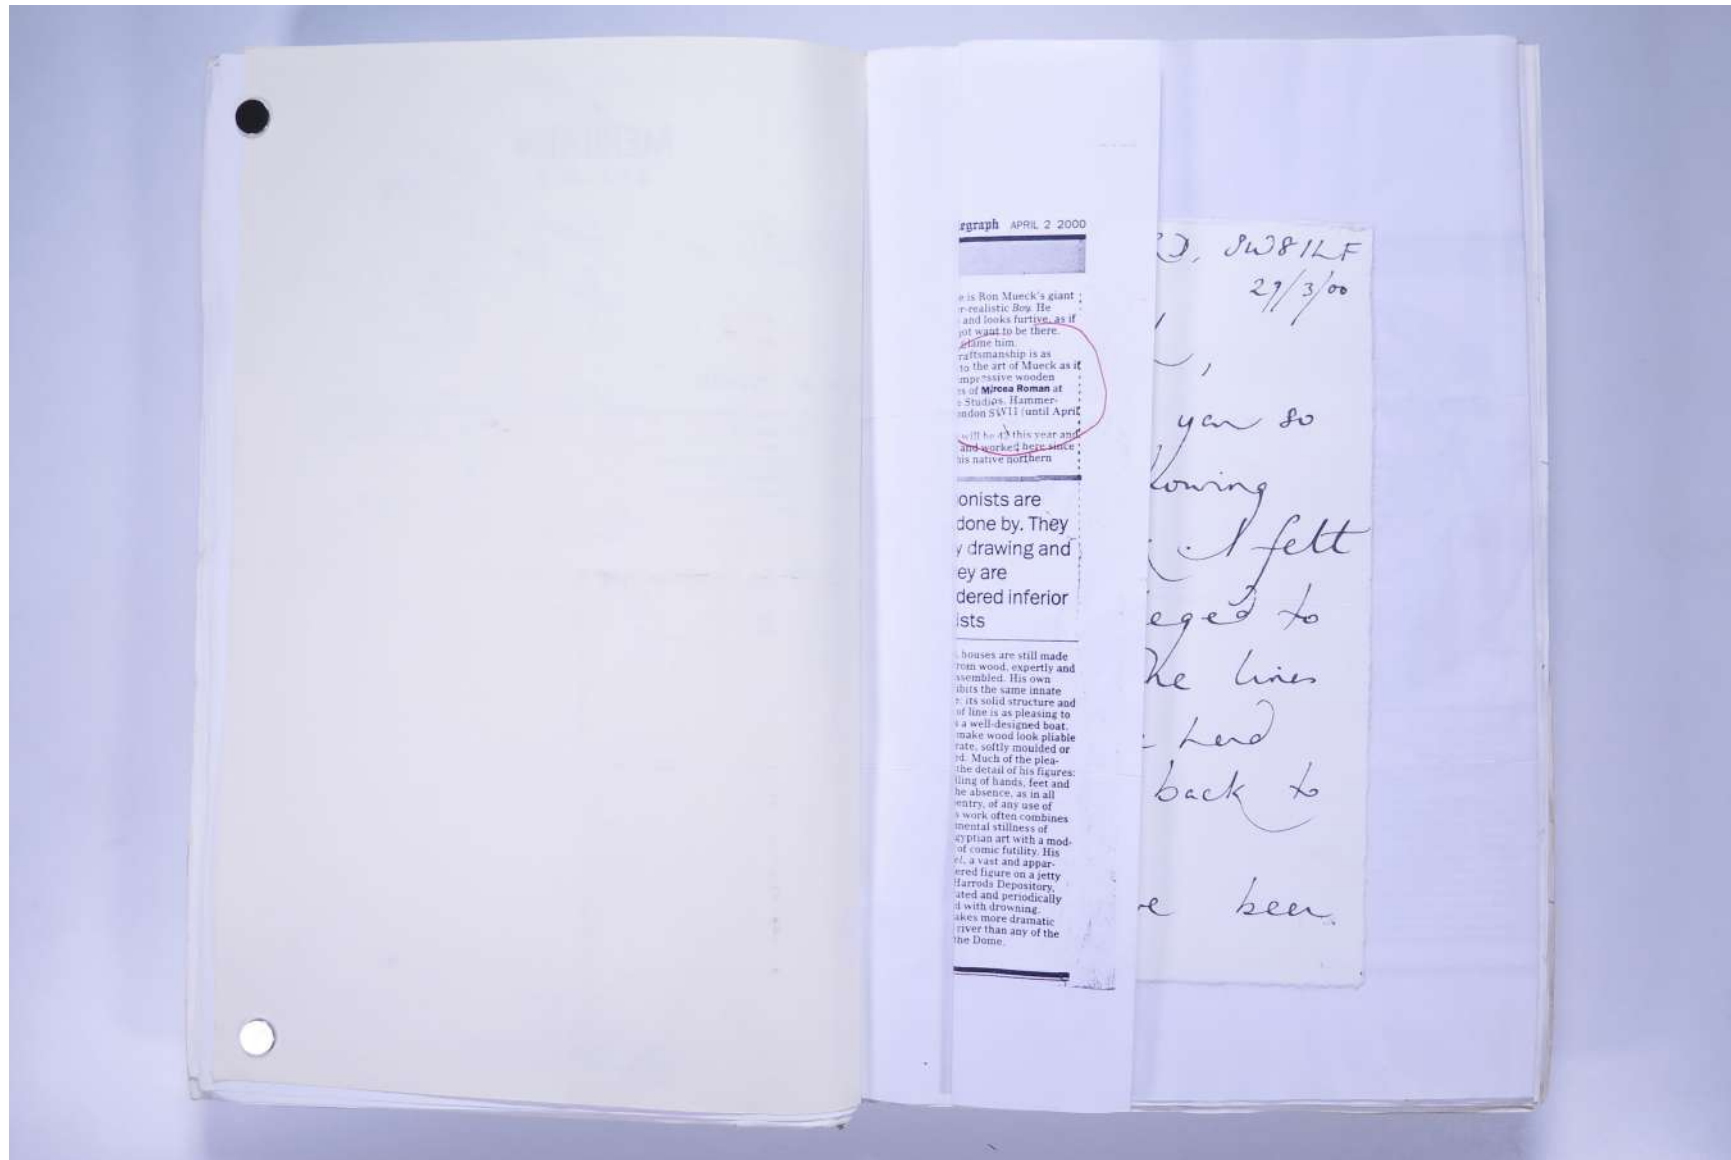 egraph APRIL 2 2000
e is Ron Mueck's giant
r-realistic Boy. He
and looks furtive, as if
ot want to be there.
blame him.
raftsmanship is as
to the art of Mueck as it
mpressive wooden
es of Mircea Roman at
e Studios, Hammer-
ondon SW11 (until April
will be 42 this year and
and worked here since
his native northern
onists are
done by. They
y drawing and
ey are
dered inferior
ists
houses are still made
rom wood, expertly and
ssembled. His own
ibits the same innate
e: its solid structure and
of line is as pleasing to
s a well-designed boat.
make wood look pliable
rate, softly moulded or
ed. Much of the plea-
the detail of his figures:
lling of hands, feet and
he absence, as in all
entry, of any use of
s work often combines
mental stillness of
gyptian art with a mod-
of comic futility. His
el, a vast and appar-
ered figure on a jetty
Harrods Depository,
ated and periodically
d with drowning,
akes more dramatic
river than any of the
the Dome.
RD, SW8 1LF
29/3/00
you so
howing
. I felt
eged to
the lines
back to
e been